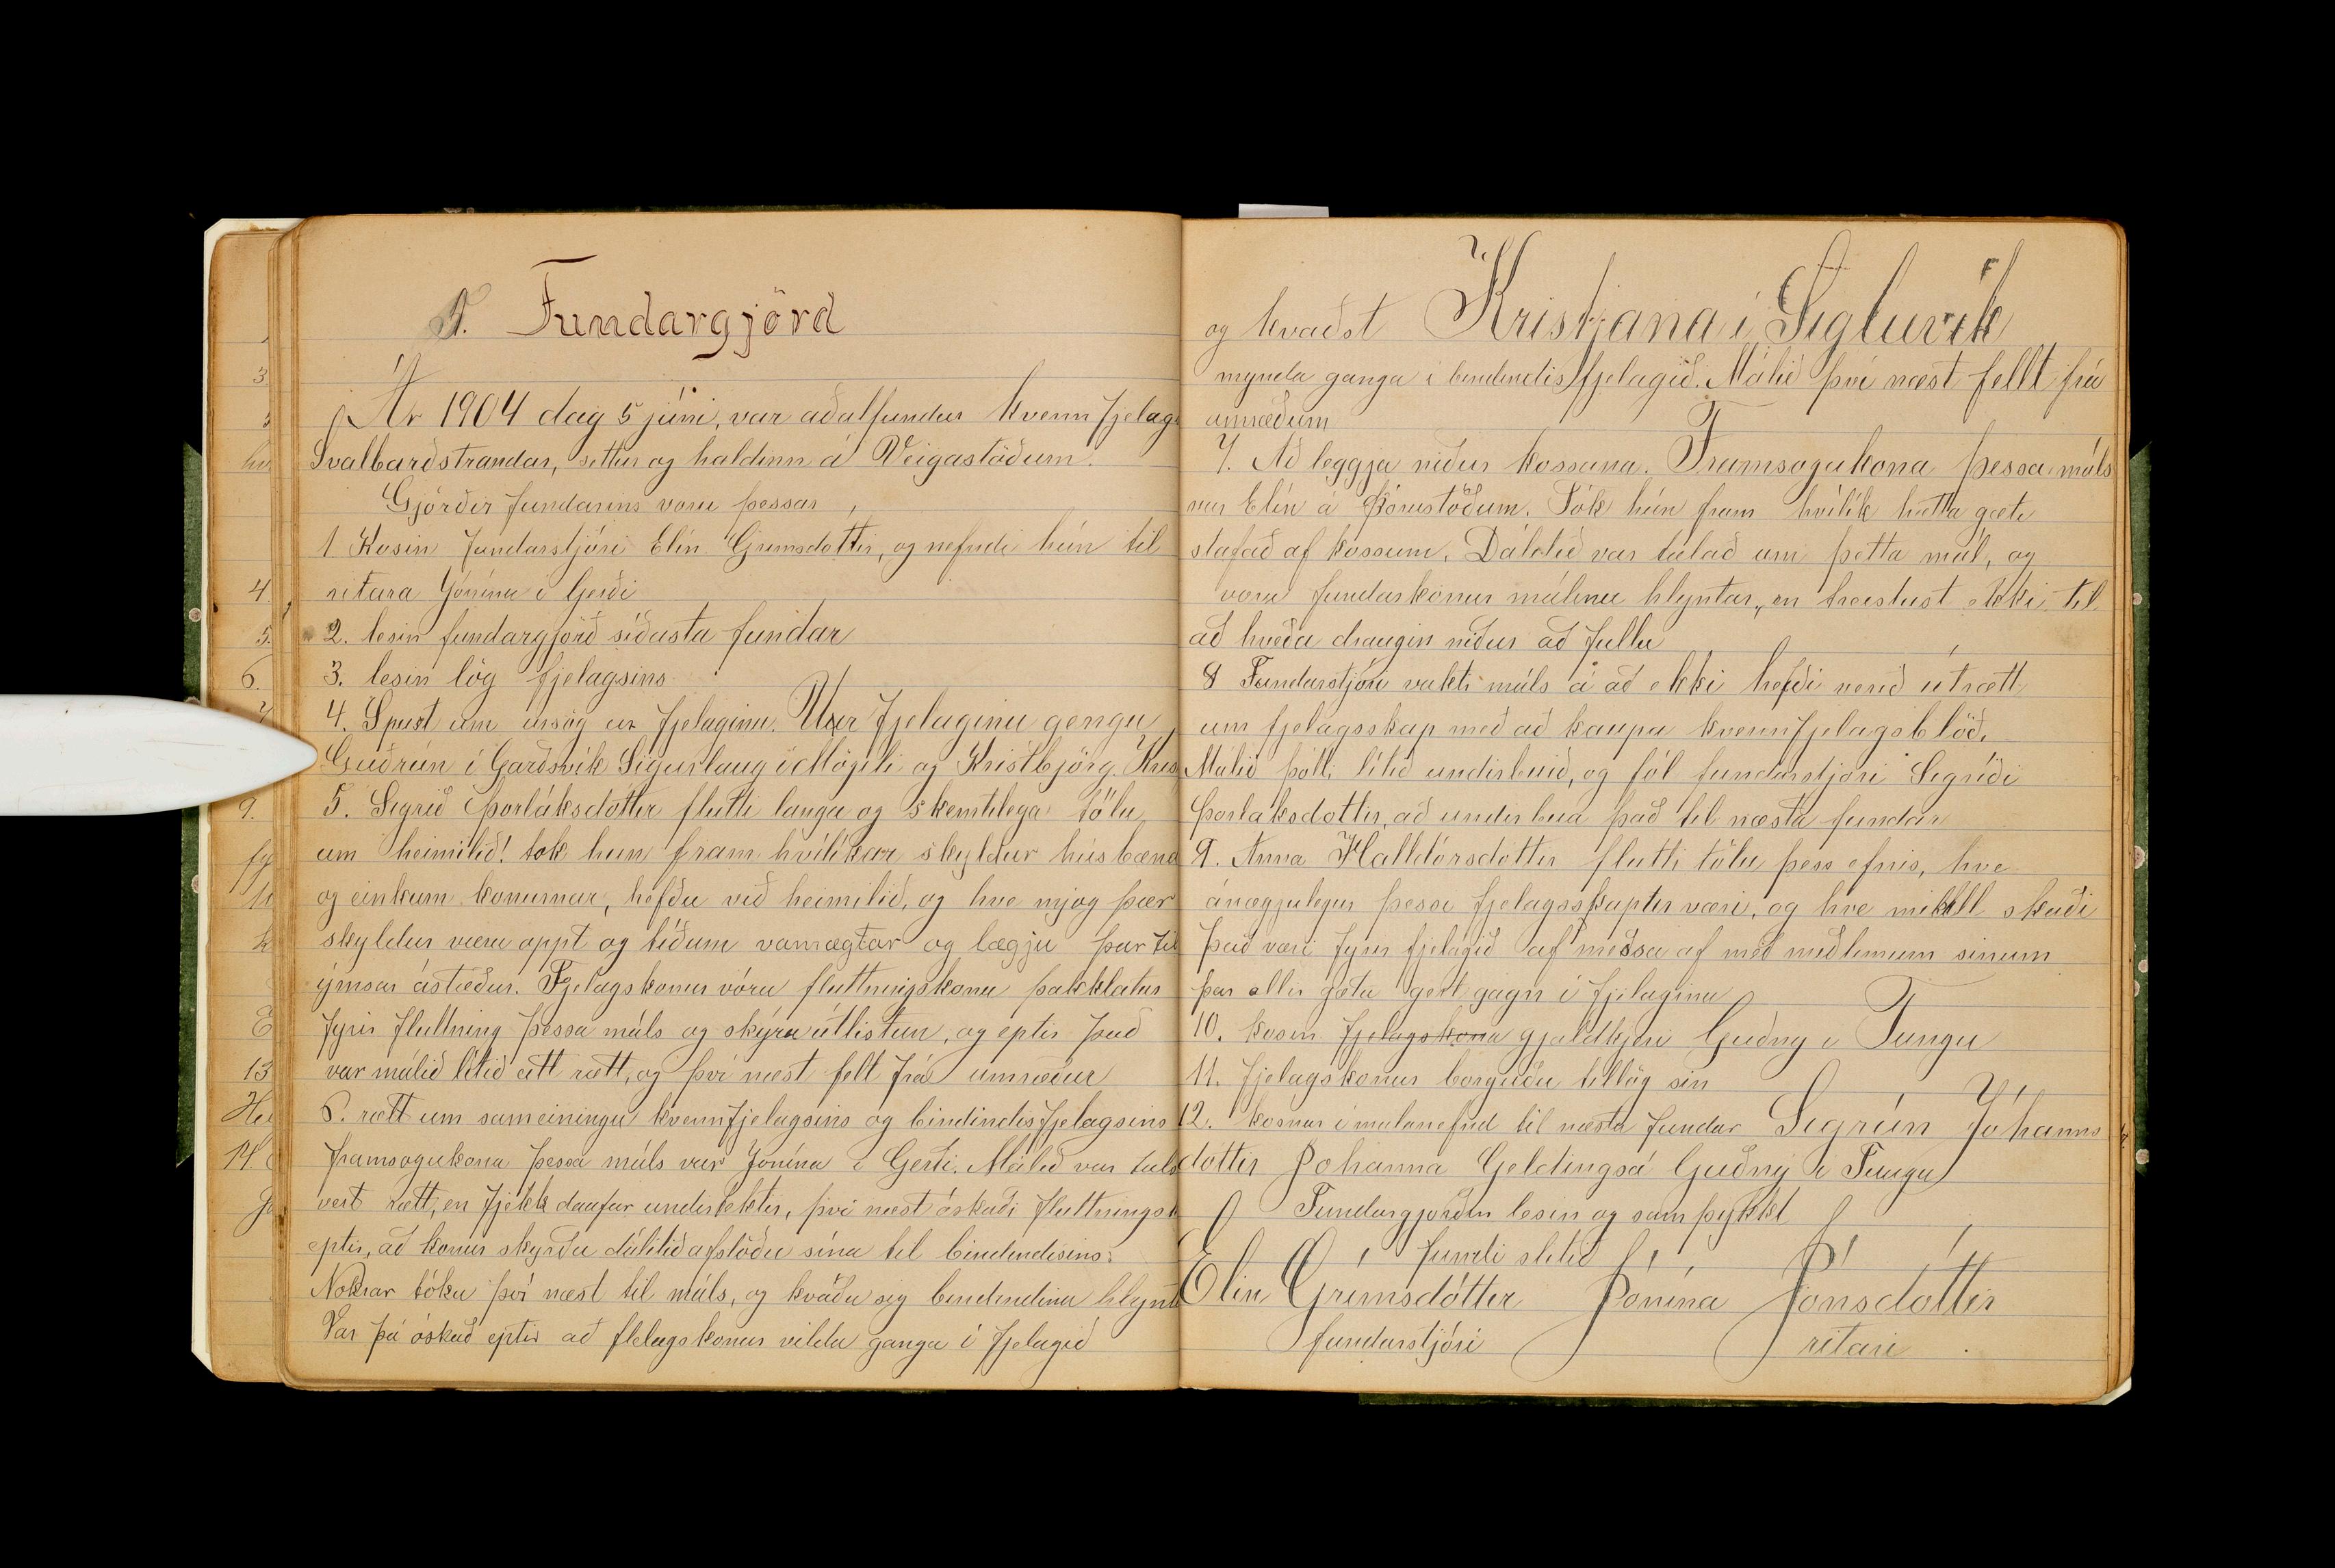 Fundargjörð
Ár 1904 dag 5 júni, var aðalfundur kvennfjelags
Svalbarðstrandar, settur og haldinn á Veigastöðum.
Gjörðir fundarins voru þessar,
1. Kosin fundarstjóri Elín Grimsdottir, og nefndi hún til
ritara Jónínu i Gerði
2. lesin fundargjörð síðasta fundar
3. lesin lög fjelagsins
4. Spurt um ursög ur fjelaginu. Uur fjelaginu gengu
Guðrún í Garðsvík Sigurlaug í Mógili og Kristbjörg Kris
5. Sigrið Þorláksdóttir flutti langa og skemtilega tölu
um heimilið! tok hun fram hvílíkar skyldur húsbænd
og einkum konurnar, hefðu við heimilið, og hve mjog þær
skyldur væru oppt og tíðum vanrægtar og lægju þar til
ýmsar ástæður. Fjelagskonur vóru fluttningskonu þakklatar
fyrir fluttning þessa máls og skýra útlistun, og eptir það
var málið lítið eitt rætt, og því næst felt frá umræður
6. rætt um sameiningu kvennfjelagsins og bindindisfjelagsins
framsogukona þessa máls var Jónína i Gerði. Málið var tals
vert rætt, en fjekk daufar undirtektir, því næst óskaði fluttningsk
eptir, að konur skyrðu dálítið afstöðu sína til bindindisins.
Nokrar tóku því næst til máls, og kváðu sig bindindinu hlynt
Var þá óskað eptir að flelagskonur vildu ganga í fjelagið
og kvaðst Kristjana i Sigluvík
mynda ganga i bindindisfjelagið. Málið því næst fellt frá
umræðum
7. Að leggja niður kossana. Framsogukona þessa máls
var Elín á Tók hún fram hvílík hætta gæti
stafað af kossum. Dálitið var talað um þetta mál, og
voru fundarkonur málinu hlyntar, en treistust ekki til
að kveða draugin niður að fullu
8 Fundarstjóri vakti máls á að ekki hefði verið útrætt
um fjelagsskap með að kaupa kvennfjelagsblöð.
Málið þótti lítið undirbuið, og fól fundarstjori Sigríði
Þorláksdottir, að undirbua það til næsta fundar
9. Anna Halldórsdottir flutti tölu þess efnis, hve
ánægjulegur þessi fjelagsskaptur væri, og hve mikill skaði
það væri fyrir fjelagið af messa af með meðlimum sinum
þar allir gætu gert gagn í fjelaginu
10. kosin fjelagskona gjaldkjeri Guðny i Tungu
11. fjelagskonur borguðu tillög sín
12. kosnar i malanefnd til næsta fundar Sigrún Jóhanns
dóttir Johanna Geldingsá Guðný i Tungu
Fundargjörðin lesin og samþykkt
fundi slitið
Elin Grímsdóttir Jónína Jonsdóttir
fundarstjóri ritari